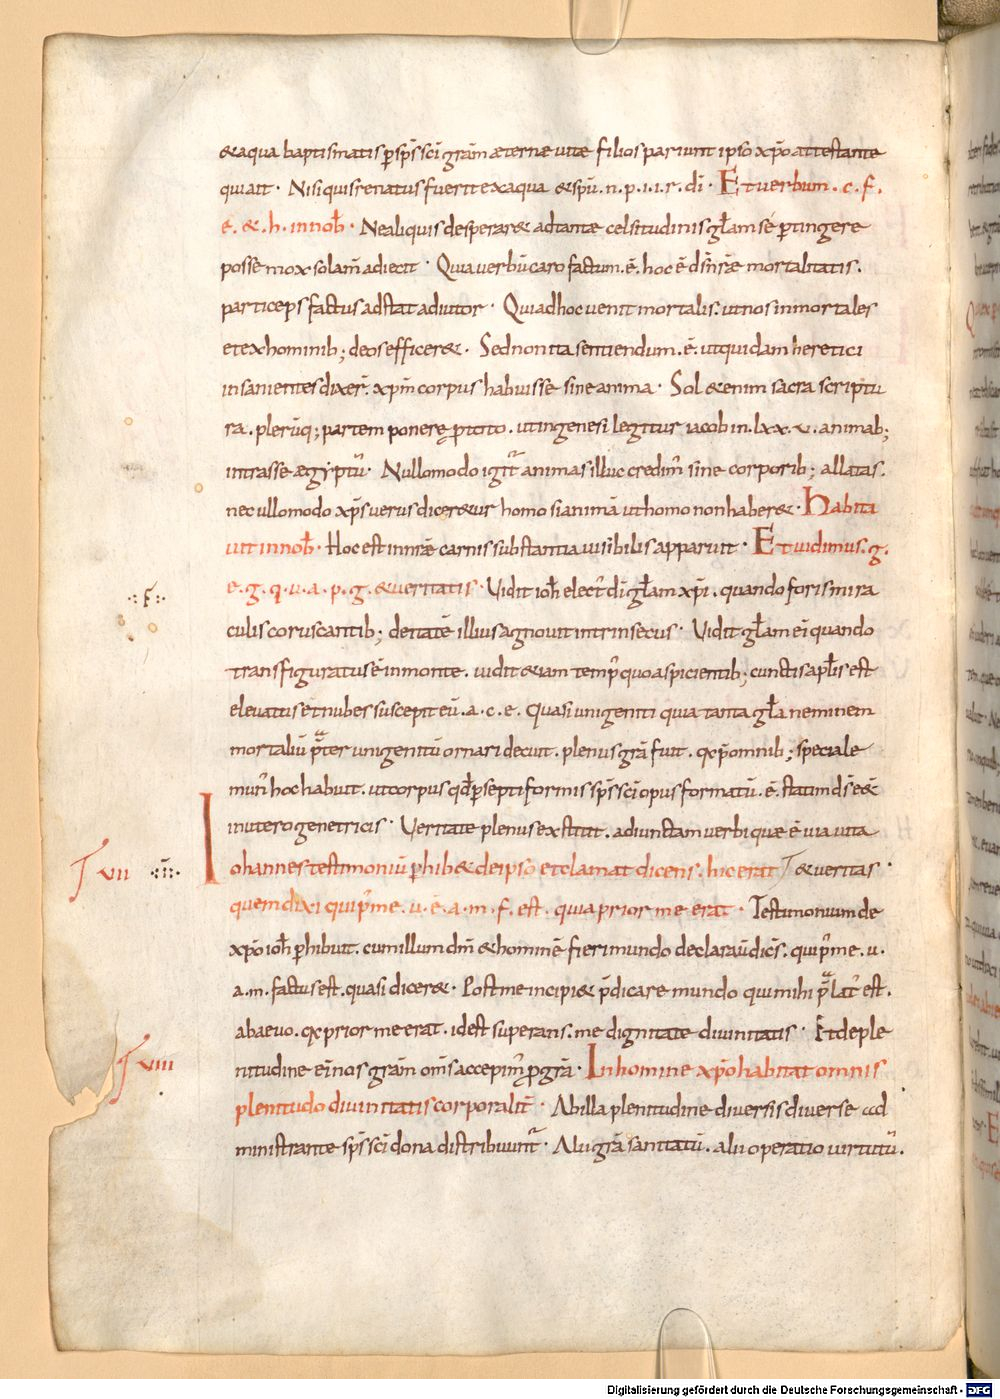 &aqua baptismatis p̄ sp̄s sc̄i grām æternæ uitæ filios pariunt ipso xp̄o attestante
qui ait · Nisi quis renatus fuerit ex aqua &sp̄u . n . p . i . i . r . dī · Et uerbum . c . f .
e . & . h . in nob̄ · Ne aliquis desperar& ad tantæ celsitudinis gl̄am se p̄tingere
posse mox solam̄ adiecit · Quia uerbū caro factum . ē . hoc ē dn̄s n̄ræ mortalitatis .
particeps factus adstat adiutor · Qui ad hoc uenit mortalis . ut nos inmortales
et ex hominib; deos effecer& . Sed non ita sentiendum . ē . ut quidam heretici
insanientes dixer̄ . xp̄m corpus habuisse sine anima · Sol& enim sacra scriptu
ra . plerūq; partem ponere p̄ toto . ut in genesi legitur iacob in . lxx . v . animab;
intrasse ægyptū · Nullo modo igit̄ animas illuc credim̄ sine corporib; allatas .
nec ullo modo xp̄s uerus dicer&ur homo si animā ut homo non haber& · Habita
uit in nob̄ · Hoc est in n̄ræ carnis substantia uisibilis apparuit · Et uidimus . g .
e . g . q . u . a . p . g . &ueritatis · Vidit ioh̄ elect̄ dī gl̄am xp̄i . quando foris mira
·: F :·
culis coruscantib; deitatē illius agnouit intrinsecus · Vidit gl̄am eī quando
transfiguratus ē in monte . uidit &iam temp̄ quo aspicientib; cunctis apl̄is est
eleuatus et nubes suscepit eū . a . c . e . Quasi unigeniti quia tanta gl̄a neminem
mortaliū p̄ter unigenitū ornari decuit . plenus grā fuit . q xp̄o omnib; speciale
mun̄ hoc habuit . ut corpus qd̄ p̄ septiformis sp̄s sc̄i opus formatū . ē . statim d̄s ē&
in utero genetricis · Veritate plenus exstitit . adiunctam uerbi quæ ē uia uita
T vii ·:ii:· Iohannes testimoniū p̄hib& de ipso et clamat dicens . hic erat T &ueritas ·
quem dixi qui p̄ me . u . e . a . m . f . est . quia prior me erat · Testimonium de
xp̄o ioh̄ p̄hibuit . cum illum dm̄ &hominē fieri mundo declarau̅ dic̄s . qui p̄ me . u .
a . m . factus est . quasi dicer& · Post me incipi& p̄dicare mundo qui mihi p̄lat̄ est .
ab aeuo . q prior me erat . id est superans . me dignitate diuinitatis · Et de ple
T viii nitudine eī nos grām om̄s accepim̄ p̄ grā · In homine xp̄o habitat omnis
plenitudo diuinitatis corporalit̄ · Ab illa plenitudine diuersis diuerse ad
ministrante sp̄s sc̄i dona distribuunt̄ · Alii grā sanitatū . alii operatio uirtutū .
Digitalisierung gefördert durch die Deutsche Forschungsgemeinschaft - DFG